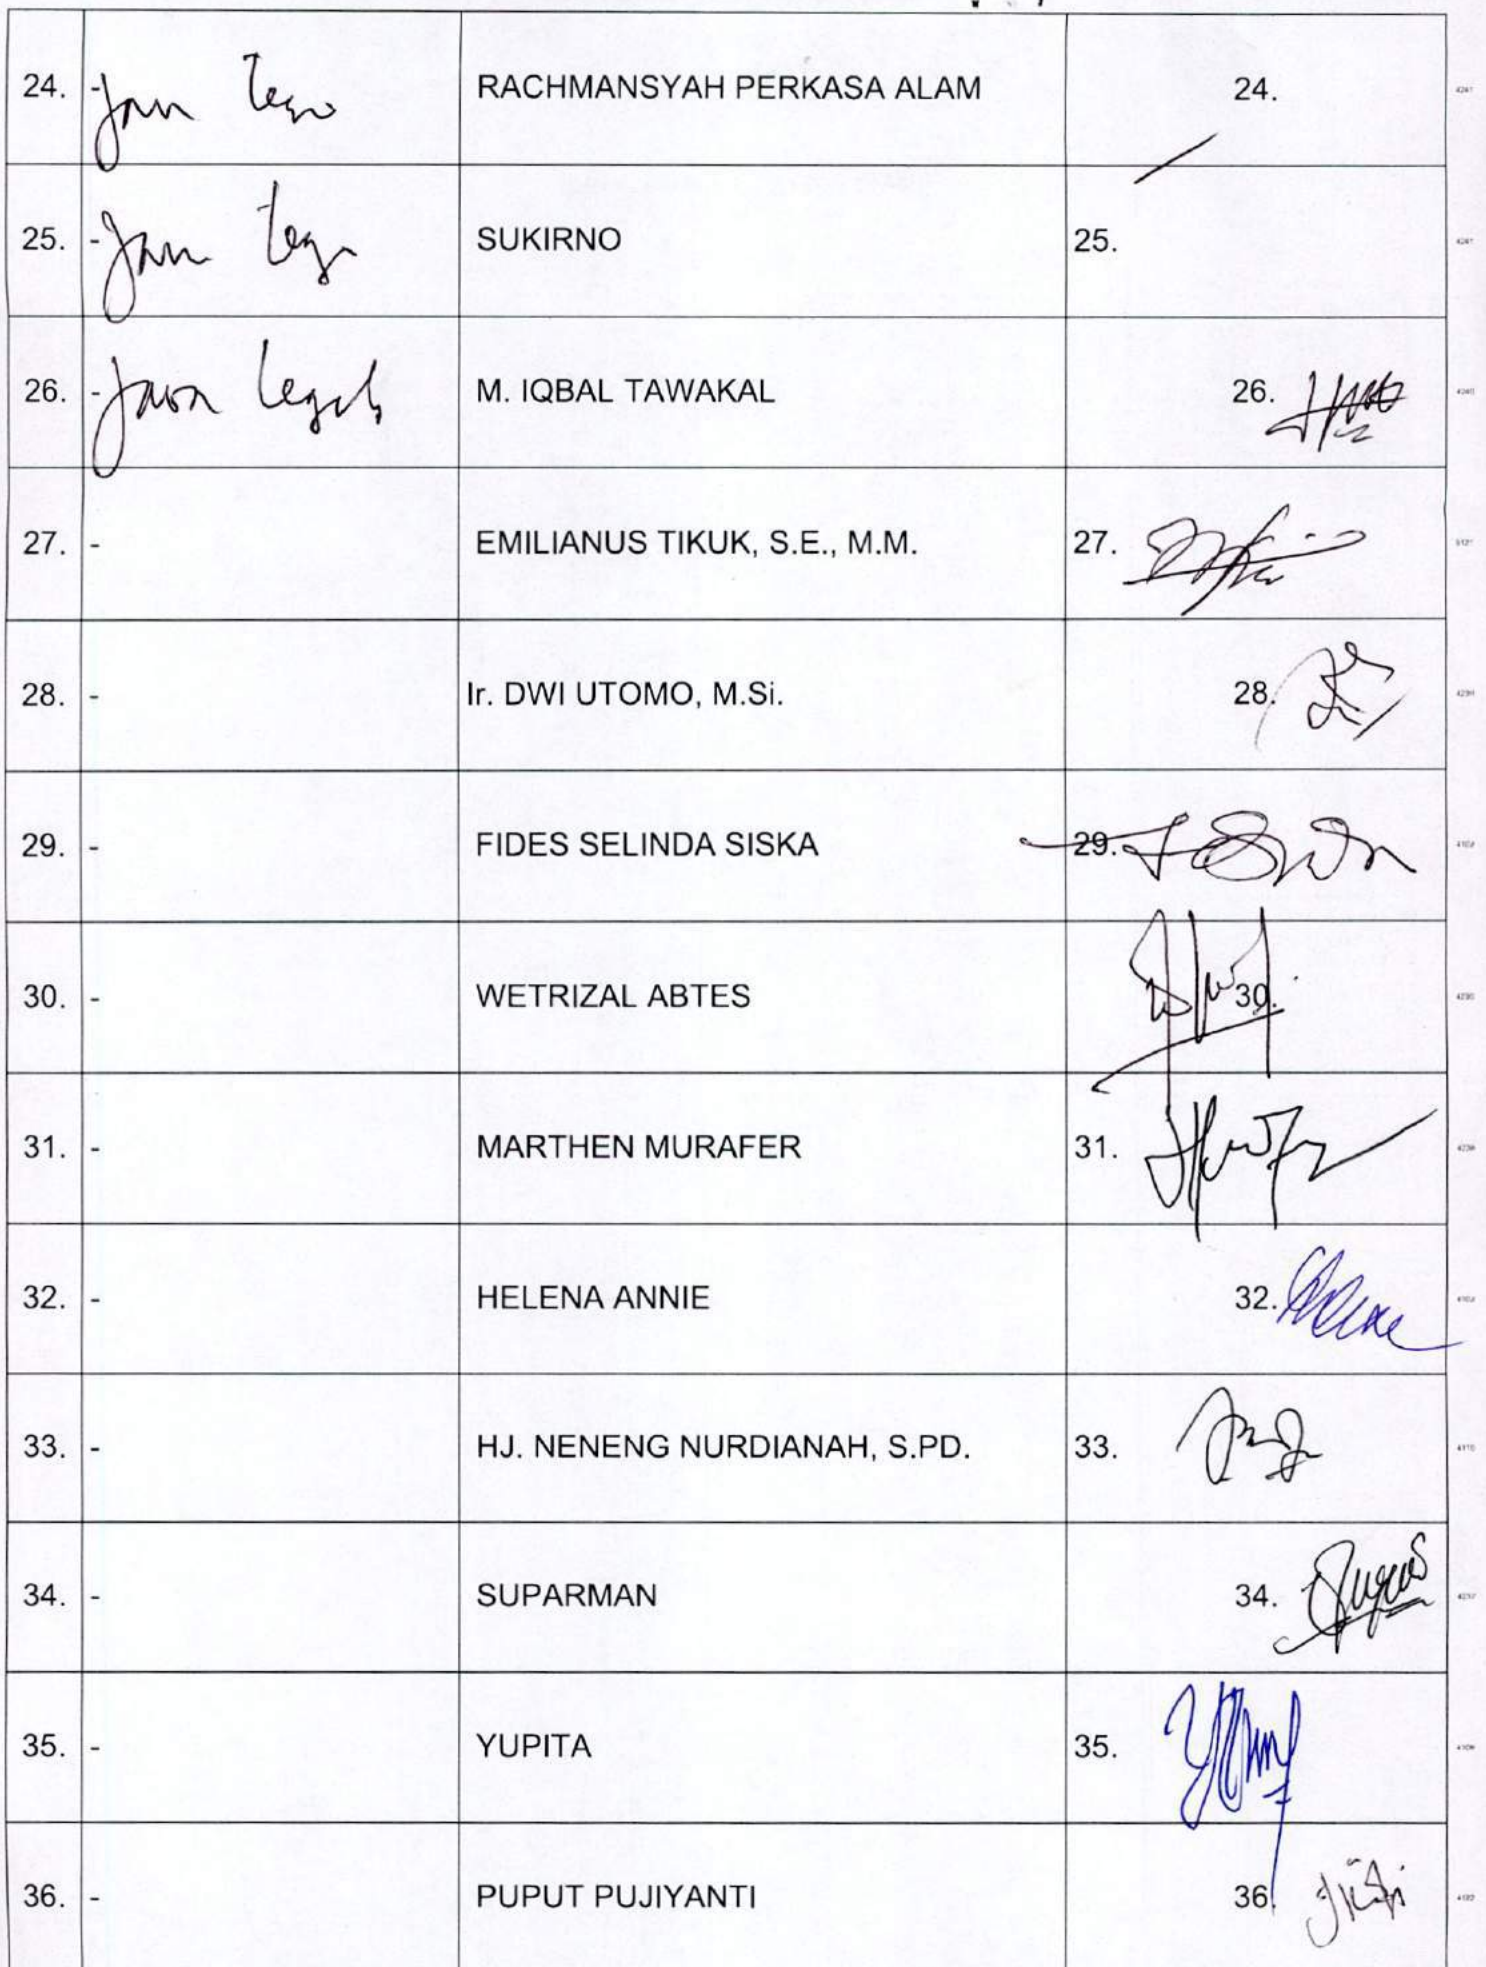 24. - Jawa Tengah RACHMANSYAH PERKASA ALAM 24.
25. - SUKIRNO 25.
26. - Jawa M. IQBAL TAWAKAL 26.
27. - EMILIANUS TIKUK, S.E., M.M. 27.
28. - Ir. DWI UTOMO, M.Si. 28.
29. - FIDES SELINDA SISKA 29.
30. - WETRIZAL ABTES 30.
31. - MARTHEN MURAFER 31.
32. - HELENA ANNIE 32.
33. - HJ. NENENG NURDIANAH, S.PD. 33.
34. - SUPARMAN 34.
35. - YUPITA 35.
36. - PUPUT PUJIYANTI 36.